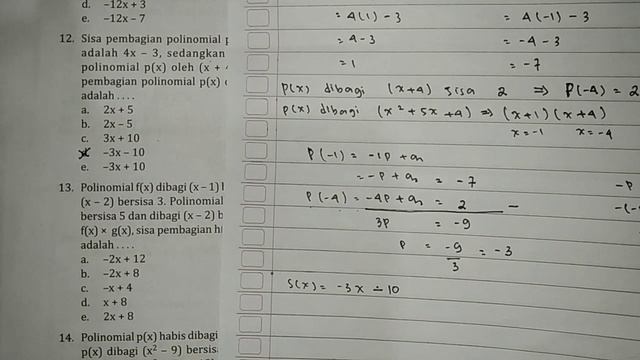 d. −12x + 3
e. −12x − 7
12. Sisa pembagian polinomial
adalah 4x − 3, sedangkan
polinomial p(x) oleh (x +
pembagian polinomial p(x)
adalah . . . .
a. 2x + 5
b. 2x − 5
c. 3x + 10
−3x − 10
e. −3x + 10
13. Polinomial f(x) dibagi (x − 1)
(x − 2) bersisa 3. Polinomial
bersisa 5 dan dibagi (x − 2) b
f(x) × g(x), sisa pembagian h
adalah . . . .
a. −2x + 12
b. −2x + 8
c. −x + 4
d. x + 8
e. 2x + 8
14. Polinomial p(x) habis dibagi
p(x) dibagi (x² − 9) bersis
= 4(1) − 3 = 4(−1) − 3
= 4 − 3 = −4 − 3
= 1 = −7
P(x) dibagi (x+4) sisa 2 ⇒ P(−4) = 2
P(x) dibagi (x² + 5x + 4) ⇒ (x+1)(x+4)
x = −1 x = −4
P(−1) = −1P + a
= −P + a = −7
P(−4) = −4P + a = 2 −
3P = −9
P = −9/3 = −3
S(x) = −3x − 10
−P